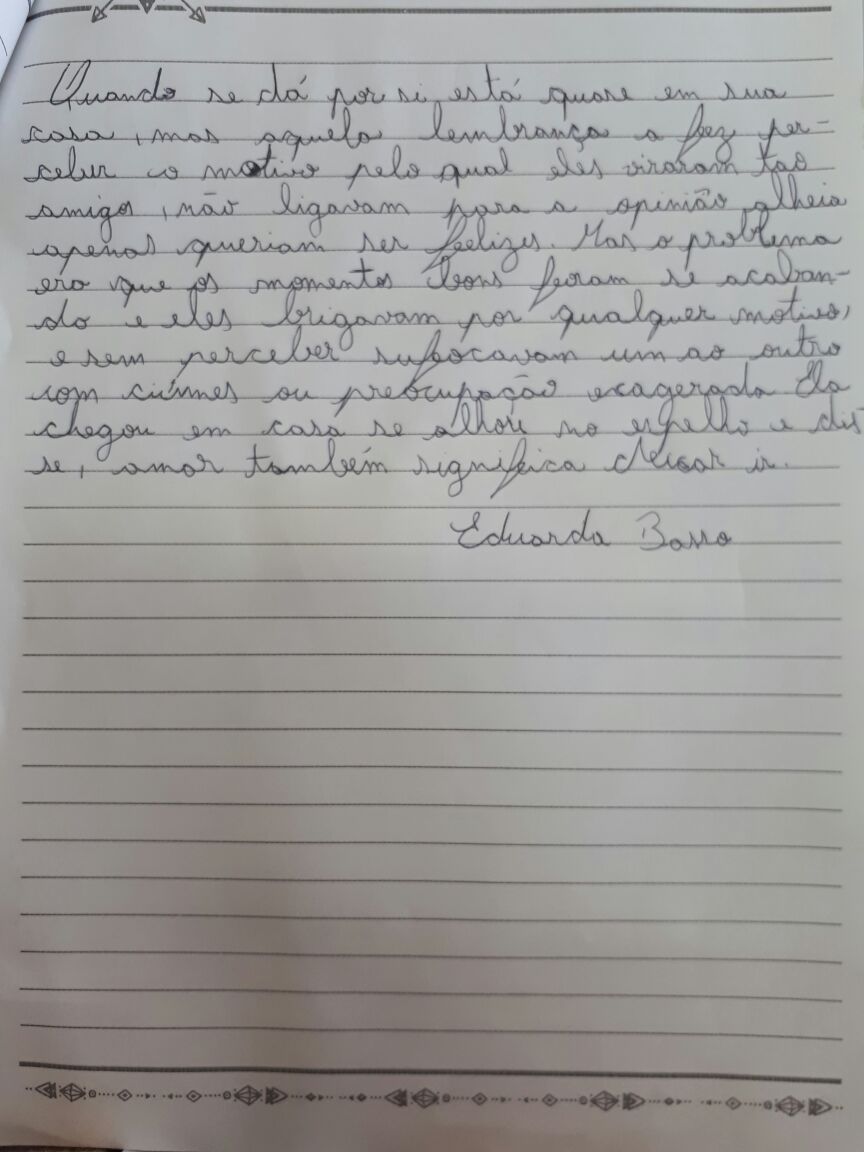 Quando se dá por si, está quase em sua
casa, mas aquela lembrança a fez per-
ceber o motivo pelo qual eles viraram tão
amigos, não ligavam para a opinião alheia
apenas queriam ser felizes. Mas o problema
era que os momentos bons foram se acaban-
do e eles brigavam por qualquer motivo,
e sem perceber sufocavam um ao outro
com ciúmes ou preocupação exagerada. Ela
chegou em casa se olhou no espelho e dis
se, amor também significa deixar ir.
Eduarda Basso